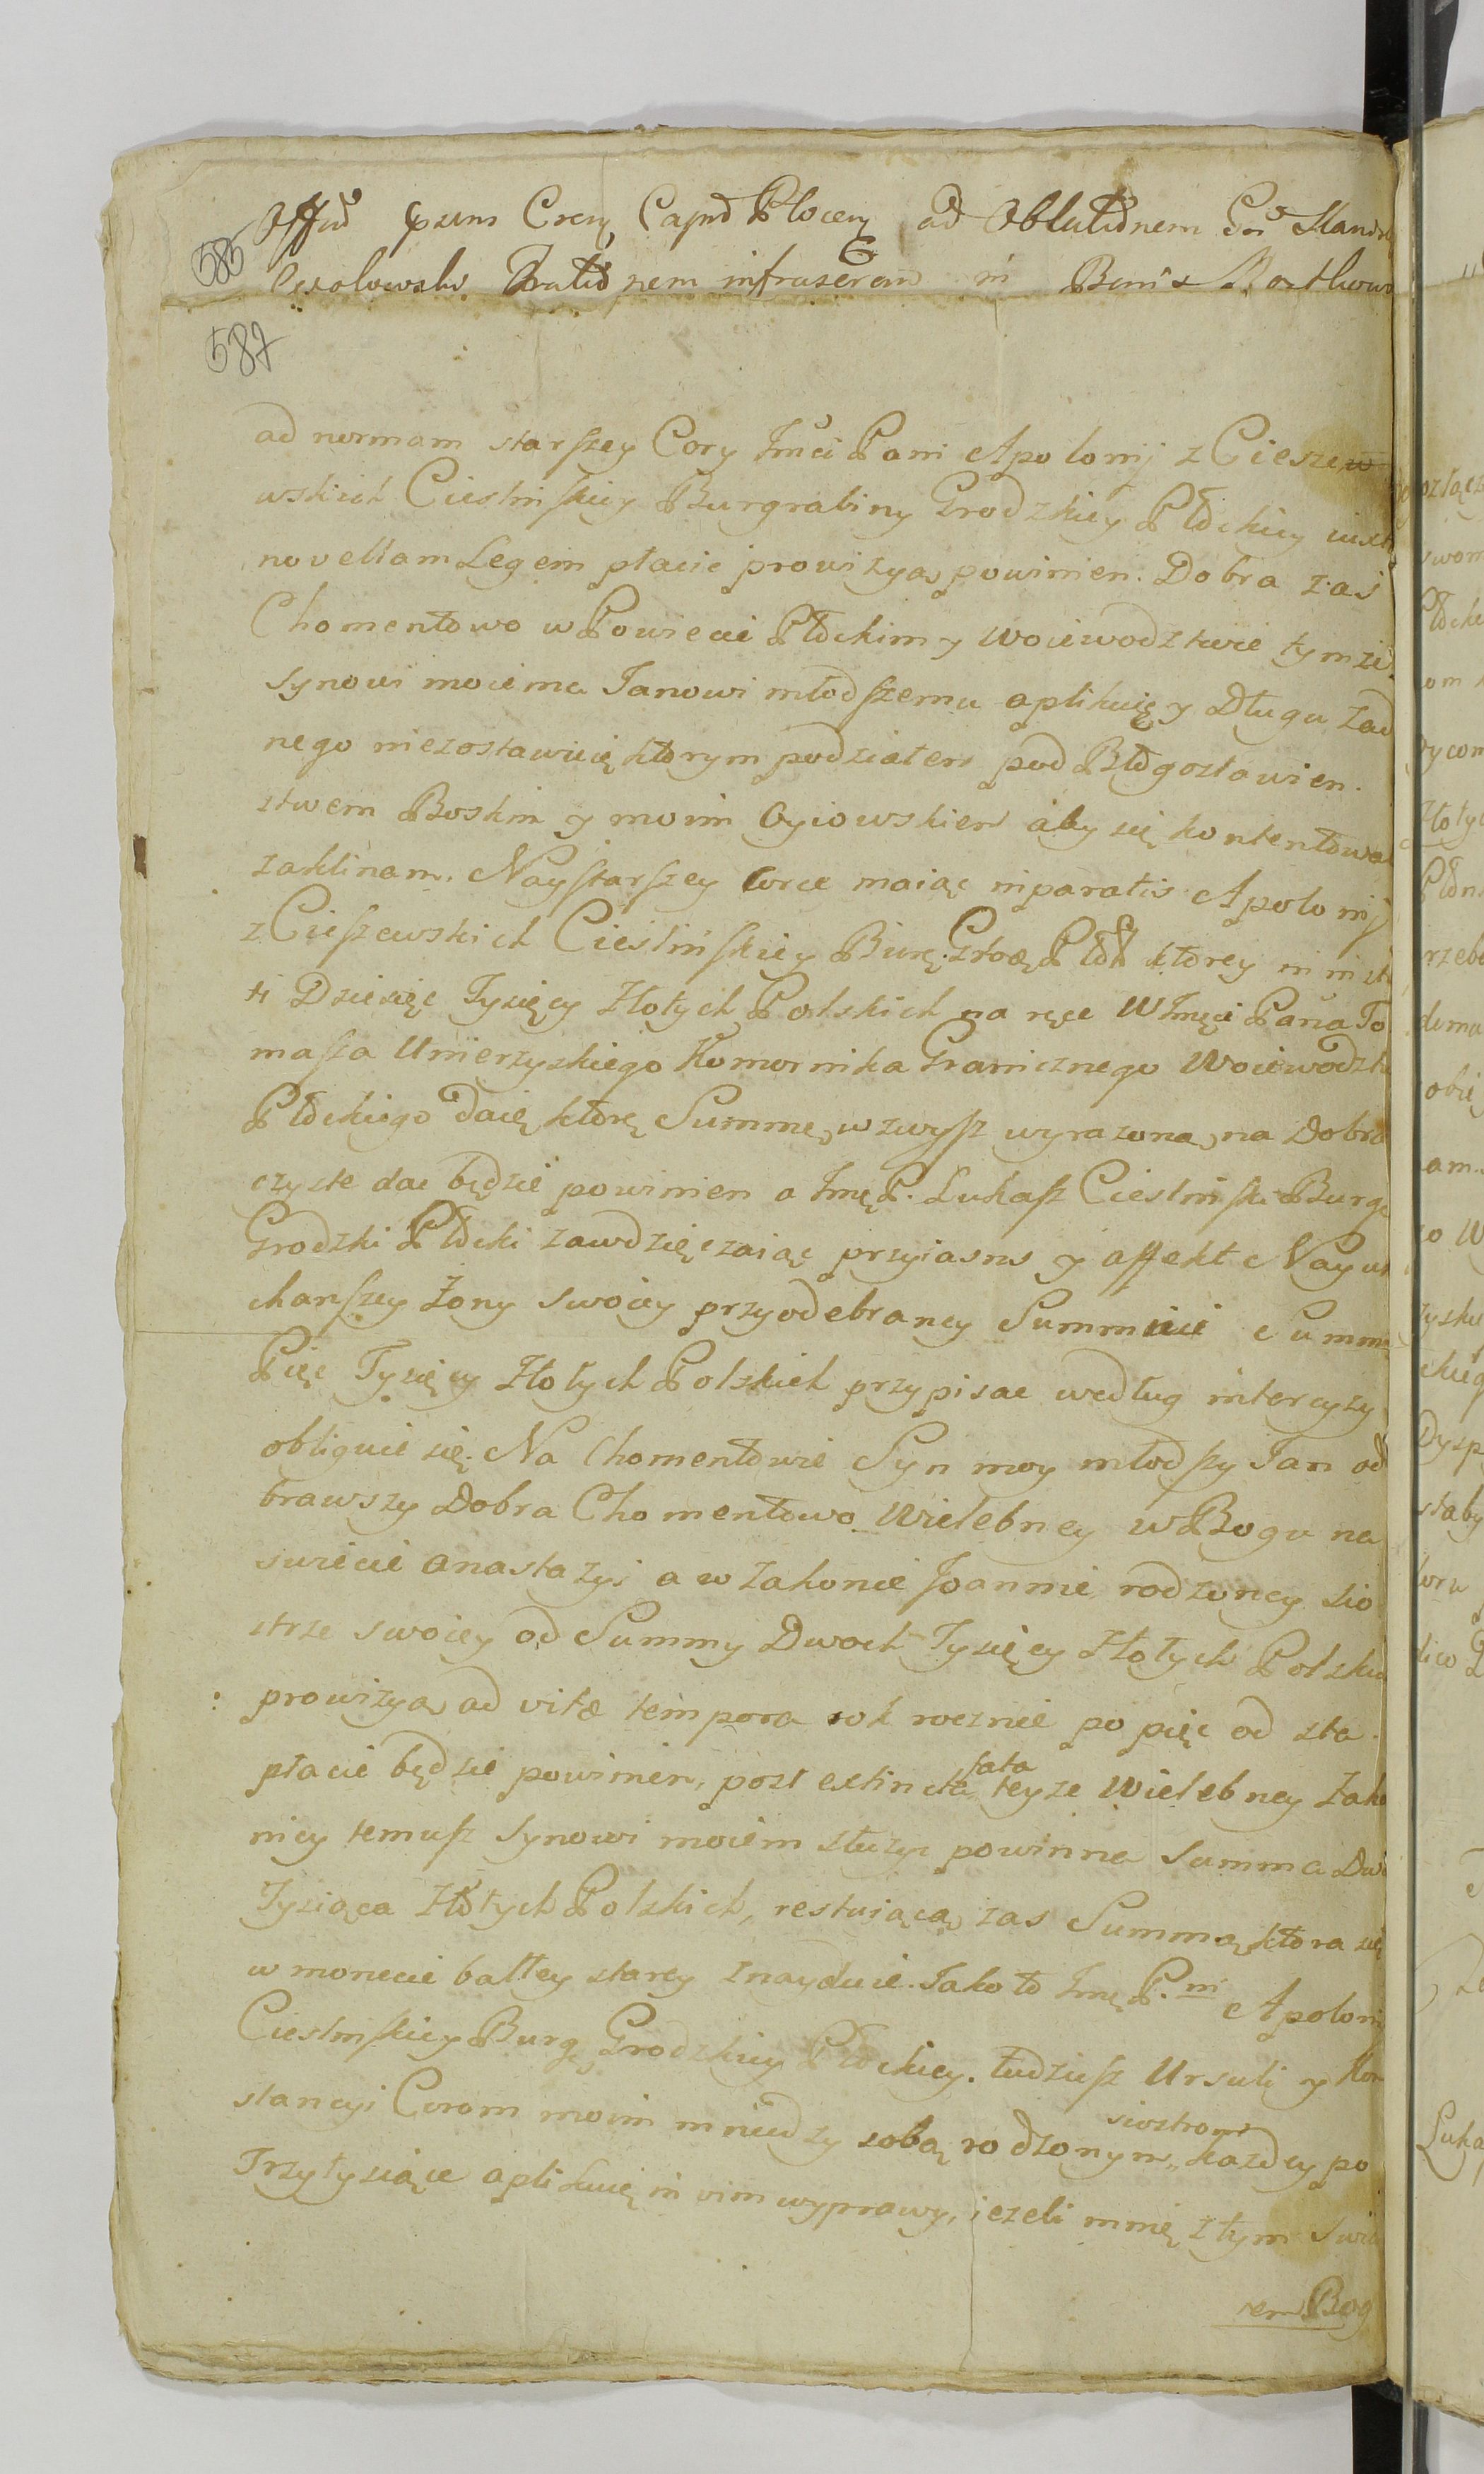 585
ad Oblationem
infrascrem in Bonis
587
ad normam starszey Cory Jmci Pani Apolonij z Cieszew
wskich Cieslinskiey Burgrabiny Grodzkiey Płockiey iuxta
novellam Legem płacic prowizyą powinien. Dobra zas
Chomentowo w Powiecie Płockim y Woiewodztwie tymze
synowi moiemu Janowi młodszemu aplikuię y Długu zad
nego niezostawuię ktorym podziałem pod Błogosławien.
stwem Boskim y moim Oyiowskiem aby się kontentowal
zaklinam. Naystarszey Corce maiąc in paratis Apolonij
z Cieszewskich Cieslinskiey Burg. Grodz Płł ktorey
ti Dziesięc Tysięcy Złotych Polskich na ręce WJmci Pana To
masza Umierzyskiego Komornika Granicznego Woiewodztwa
Płockiego daię, ktorę Summę, wzwysz wyrazoną, na Dobra
czyste dac będzie powinien a Jmę P. Lukasz Cieslinski Burg
Grodzki Płocki zawdzięczaiąc przyiazns y affekt Nayu
chanszey Zony swoiey przyodebraney Summie Summę
Pięc Tysięcy Złotych Polskich przypisac według intercyzy
obliguie się. Na Chomentowie Syn moy młodszy Jan od
brawszy Dobra Chomentowo Wielebney w Bogu na
swiecie Anastazyi a w Zakonie Joannie rodzoney Sio
strze swoiey od Summy Dwoch Tysięcy Złotych Polskich
prowizyą ad vitæ tempora rok rocznie po pięc od sta.
płacic będzie powinien, post extincta fata teyze Wielebney Zako
nicy temusz Synowi moiem sluzyc powinna Summa Dwa
Tysiąca Złotych Polskich, restuiącą zas Summą ktora się
w monecie battey starey znayduie. Jako to Jmę P.ni Apolonij
Cieslinskiey Burg Grodzkiey Płockiey. tudziesz Ursuli y Kon
stancyi Corom moim mniedzy sobą rodzonym siostrom kazdey po
Trzytysiące aplikuię in vim wyprawy, iezeli mnię z tym Swia
tem Bog